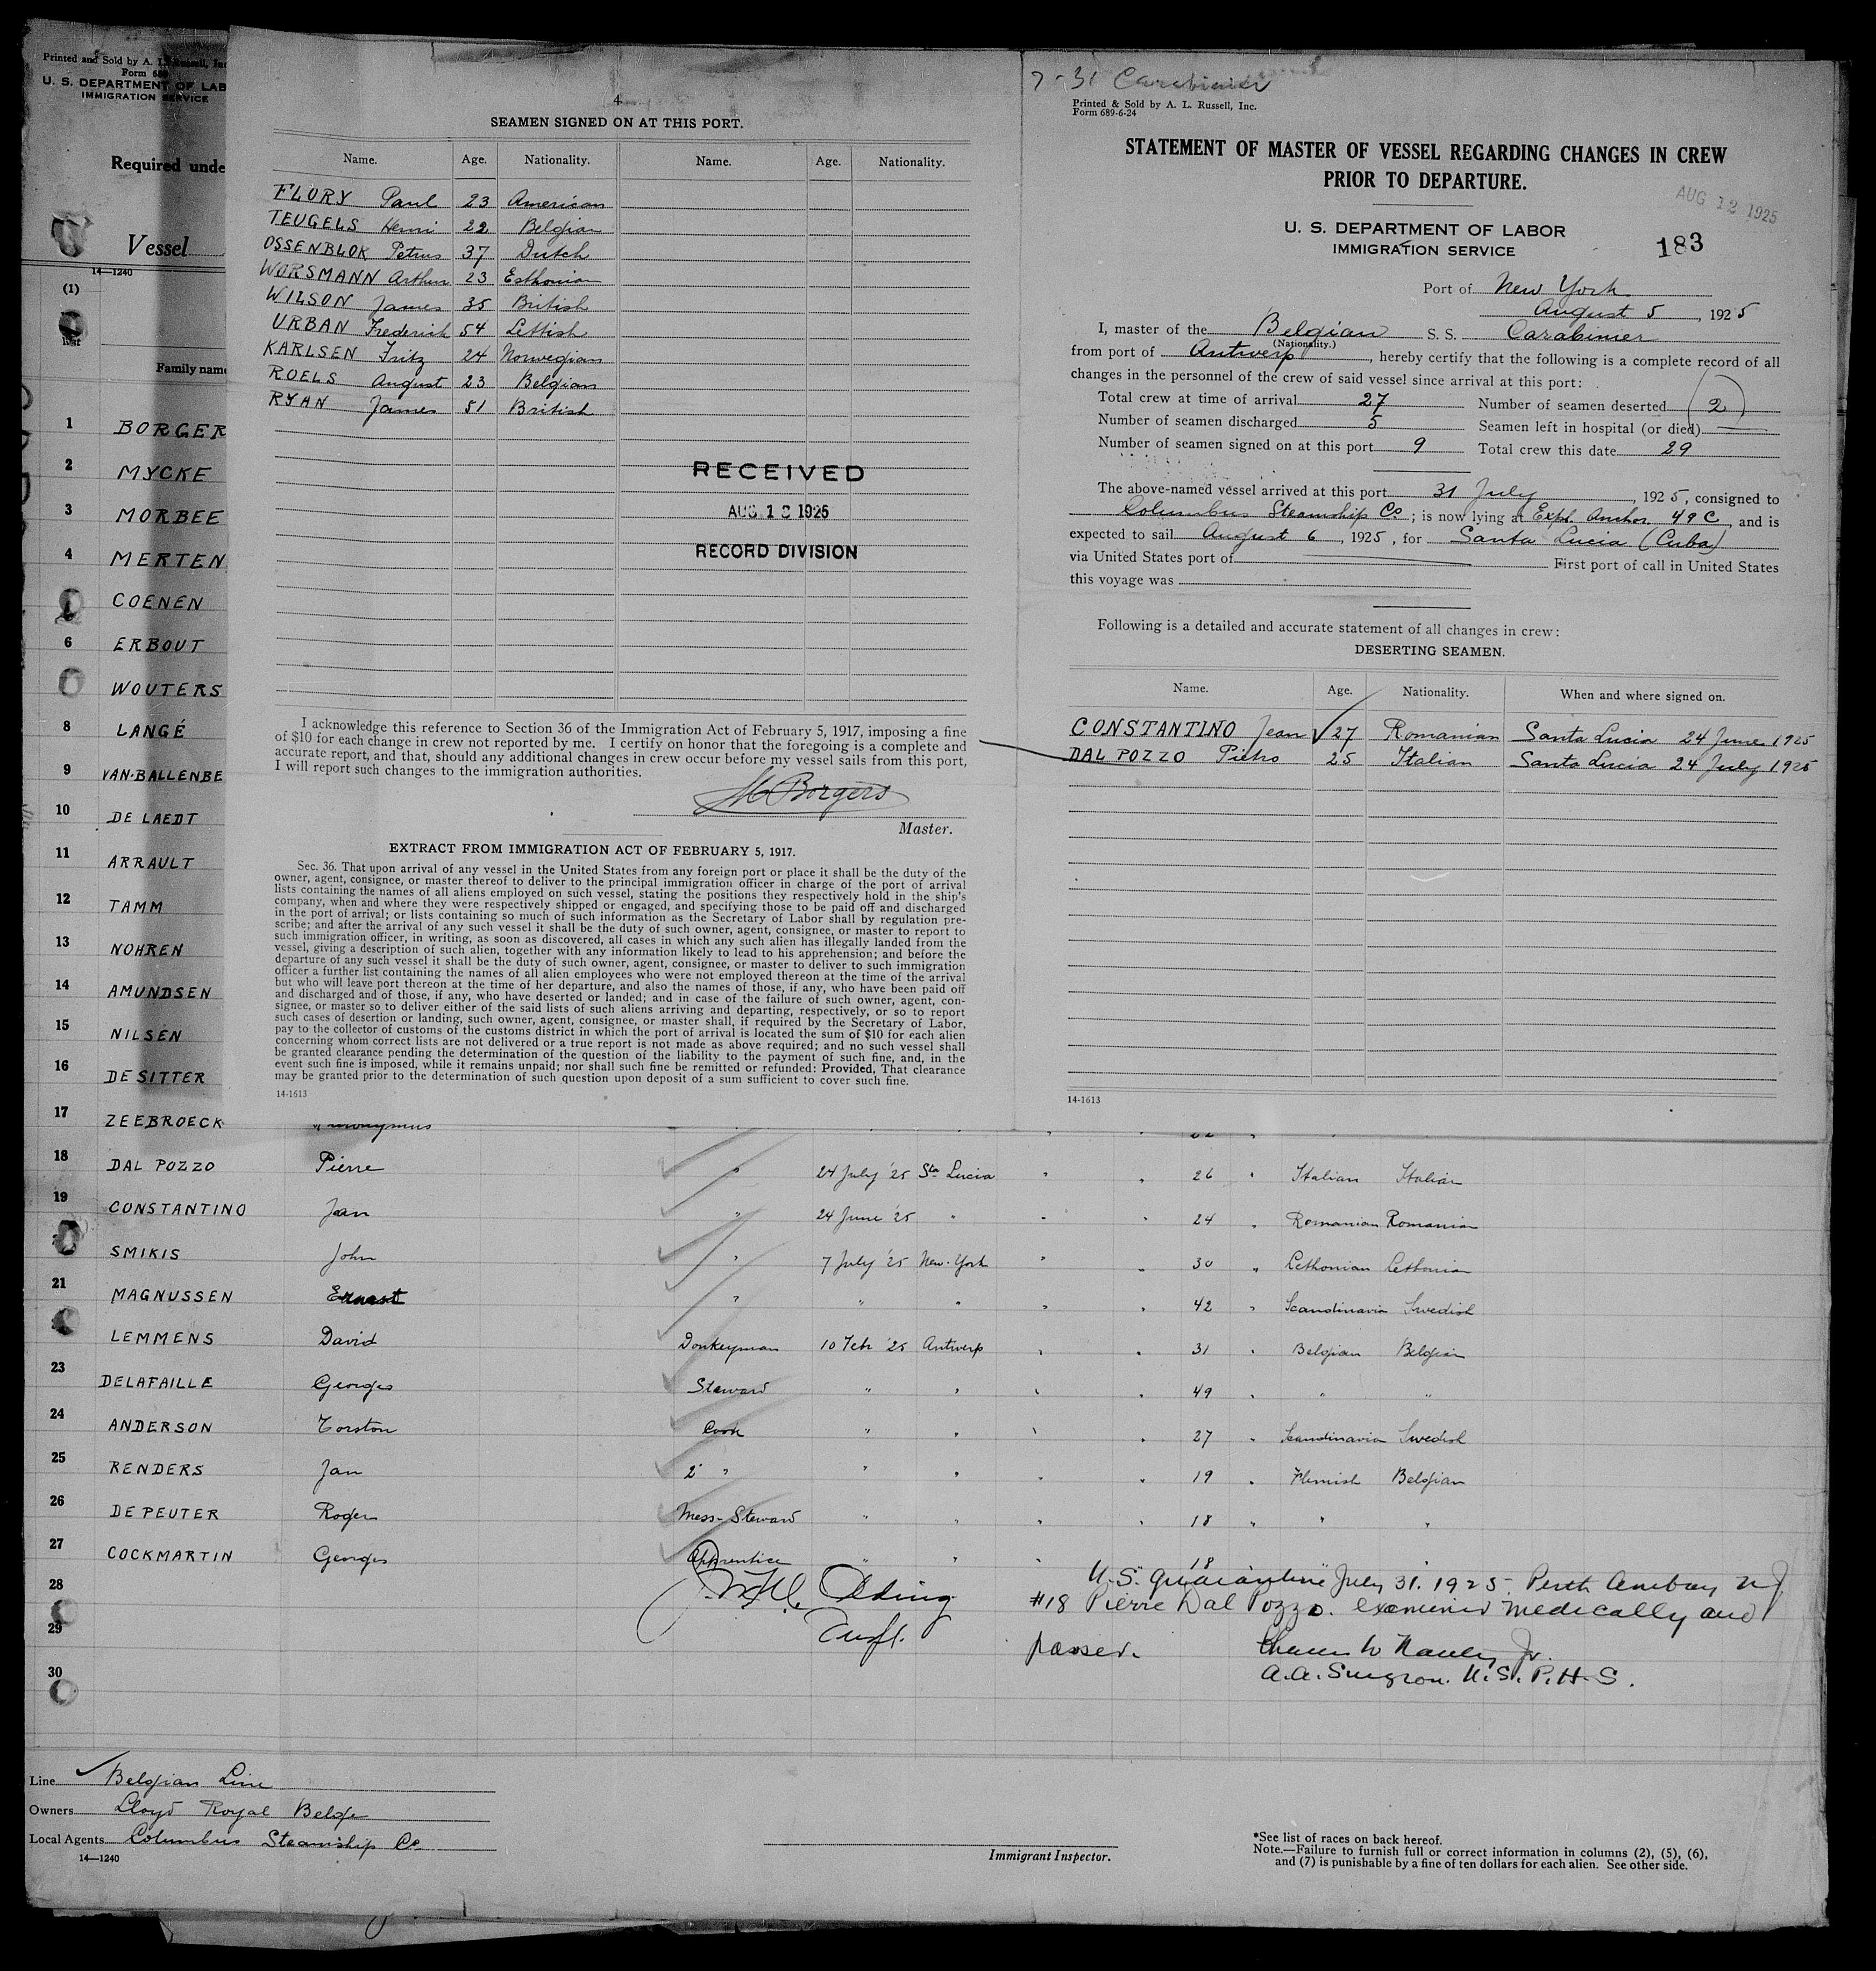 Printed and Sold by A. L. Russell, Inc
Form 689
U. S. DEPARTMENT OF LAB
IMMIGRATION SERVICE
Required unde
Vessel
14—1240
(1)
Family name
1 BORGER
2 MYCKE
3 MORBEE
4 MERTEN
COENEN
6 ERBOUT
WOUTERS
8 LANGÉ
9 VAN-BALLENBE
10 DE LAEDT
11 ARRAULT
12 TAMM
13 NOHREN
14 AMUNDSEN
15 NILSEN
16 DE SITTER
17 ZEEBROECK
4
SEAMEN SIGNED ON AT THIS PORT.
Name. Age. Nationality. Name. Age. Nationality.
FLORY Paul 23 American
TEUGELS Henri 22 Belgian
OSSENBLOK Petrus 37 Dutch
WORSMANN Arthur 23 Esthonian
WILSON James 35 British
URBAN Frederich 54 Lettish
KARLSEN Fritz 24 Norwegian
ROELS August 23 Belgian
RYAN James 51 British
RECEIVED
AUG 1 1925
RECORD DIVISION
I acknowledge this reference to Section 36 of the Immigration Act of February 5, 1917, imposing a fine
of $10 for each change in crew not reported by me. I certify on honor that the foregoing is a complete and
accurate report, and that, should any additional changes in crew occur before my vessel sails from this port,
I will report such changes to the immigration authorities.
Borgers
Master.
EXTRACT FROM IMMIGRATION ACT OF FEBRUARY 5, 1917.
Sec. 36. That upon arrival of any vessel in the United States from any foreign port or place it shall be the duty of the
owner, agent, consignee, or master thereof to deliver to the principal immigration officer in charge of the port of arrival
lists containing the names of all aliens employed on such vessel, stating the positions they respectively hold in the ship's
company, when and where they were respectively shipped or engaged, and specifying those to be paid off and discharged
in the port of arrival; or lists containing so much of such information as the Secretary of Labor shall by regulation pre-
scribe; and after the arrival of any such vessel it shall be the duty of such owner, agent, consignee, or master to report to
such immigration officer, in writing, as soon as discovered, all cases in which any such alien has illegally landed from the
vessel, giving a description of such alien, together with any information likely to lead to his apprehension; and before the
departure of any such vessel it shall be the duty of such owner, agent, consignee, or master to deliver to such immigration
officer a further list containing the names of all alien employees who were not employed thereon at the time of the arrival
but who will leave port thereon at the time of her departure, and also the names of those, if any, who have been paid off
and discharged and of those, if any, who have deserted or landed; and in case of the failure of such owner, agent, con-
signee, or master so to deliver either of the said lists of such aliens arriving and departing, respectively, or so to report
such cases of desertion or landing, such owner, agent, consignee, or master shall, if required by the Secretary of Labor,
pay to the collector of customs of the customs district in which the port of arrival is located the sum of $10 for each alien
concerning whom correct lists are not delivered or a true report is not made as above required; and no such vessel shall
be granted clearance pending the determination of the question of the liability to the payment of such fine, and, in the
event such fine is imposed, while it remains unpaid; nor shall such fine be remitted or refunded: Provided, That clearance
may be granted prior to the determination of such question upon deposit of a sum sufficient to cover such fine.
14-1613
7-31 Carabinier
Printed & Sold by A. L. Russell, Inc.
Form 689-6-24
STATEMENT OF MASTER OF VESSEL REGARDING CHANGES IN CREW
PRIOR TO DEPARTURE.
AUG 12 1925
U. S. DEPARTMENT OF LABOR
IMMIGRATION SERVICE
183
Port of New York
August 5, 1925
I, master of the Belgian S. S. Carabinier
(Nationality.)
from port of Antwerp, hereby certify that the following is a complete record of all
changes in the personnel of the crew of said vessel since arrival at this port:
Total crew at time of arrival 27 Number of seamen deserted (2)
Number of seamen discharged 5 Seamen left in hospital (or died) —
Number of seamen signed on at this port 9 Total crew this date 29
The above-named vessel arrived at this port 31 July, 1925, consigned to
Columbus Steamship Co; is now lying at Expl. Anchor. 49 C, and is
expected to sail August 6, 1925, for Santa Lucia (Cuba)
via United States port of First port of call in United States
this voyage was
Following is a detailed and accurate statement of all changes in crew:
DESERTING SEAMEN.
Name. Age. Nationality. When and where signed on.
CONSTANTINO Jean 27 Romanian Santa Lucia 24 June 1925
DAL POZZO Pietro 25 Italian Santa Lucia 24 July 1925
14-1613
18 DAL POZZO Pierre " 24 July '25 Sta Lucia " " 26 " Italian Italian
19 CONSTANTINO Jan " 24 June '25 " " " 24 " Romanian Romanian
SMIKIS John " 7 July '25 New-York " " 30 " Lethonian Lethonian
21 MAGNUSSEN Ernest " " " " " 42 " Scandinavia Swedish
LEMMENS David Donkeyman 10 Feb '25 Antwerp " " 31 " Belgian Belgian
23 DELAFAILLE Georges Steward " " " " 49 " " "
24 ANDERSON Torston Cook " " " " 27 " Scandinavia Swedish
25 RENDERS Jan 2d " " " " " 19 " Flemish Belgian
26 DE PEUTER Roger Mess-Steward " " " " 18 " " "
27 COCKMARTIN Georges Apprentice " " " 18
28
29
30
U.S. Quarantine July 31. 1925. Perth Amboy NJ
#18 Pierre Dal Pozzo. examined medically and
passed.
A.A. Surgeon. U.S.P.H.S.
Line Belgian Line
Owners Lloyd Royal Belge
Local Agents Columbus Steamship Co
14—1240
Immigrant Inspector.
*See list of races on back hereof.
Note.—Failure to furnish full or correct information in columns (2), (5), (6),
and (7) is punishable by a fine of ten dollars for each alien. See other side.